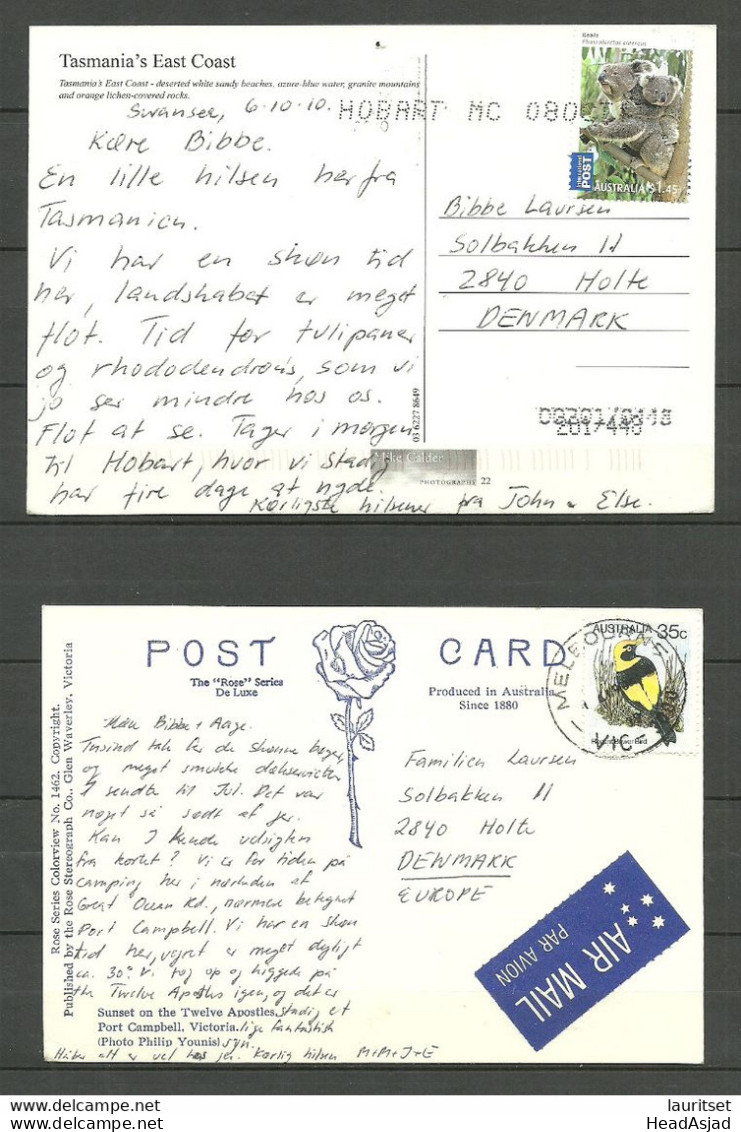 Tasmania's East Coast
Tasmania's East Coast - deserted white sandy beaches, azure-blue water, granite mountains
and orange lichen-covered rocks.
Swansea, 6.10.10.
HOBART MC 080
Kære Bibbe.
En lille hilsen herfra
Tasmanien.
Vi har en skøn tid
her, landskabet er meget
flot. Tid for tulipaner
og rhododendrons, som vi
jo ser mindre hos os.
Flot at se. Tager i morgen
til Hobart, hvor vi stadig
har fire dage at nyde.
Kærligste hilsener fra John & Else.
Koala
Phascolarctos cinereus
International
POST
AUSTRALIA $1.45
Bibbe Laursen
Solbakken 11
2840 Holte
DENMARK
03 6227 8649
201/448
Calder
PHOTOGRAPHY 22
POST CARD
The "Rose" Series
De Luxe
Produced in Australia
Since 1880
AUSTRALIA 35c
MELBOURNE
VIC
Regent Bower Bird
Rose Series Colorview No. 1462. Copyright.
Published by the Rose Stereograph Co., Glen Waverley, Victoria
Kære Bibbe + Aage.
Tusind tak for de skønne bøger
og meget smukke dækservietter
I sendte til Jul. Det var
noget så sødt af jer.
Kan I kende udsigten
fra kortet? Vi er for tiden på
camping her i nærheden af
Great Ocean Rd., nærmere betegnet
Port Campbell. Vi har en skøn
tid her, vejret er meget dejligt
ca. 30°. Vi tog op og kiggede på
the Twelve Apostles igen, og det er
stadig et
lige fantastisk
syn.
Håber alt er vel hos jer. Kærlig hilsen M+M+J+E
Sunset on the Twelve Apostles,
Port Campbell, Victoria.
(Photo Philip Younis)
Familien Laursen
Solbakken 11
2840 Holte
DENMARK
EUROPE
AIR MAIL
PAR AVION
lauritset
HeadAsjad